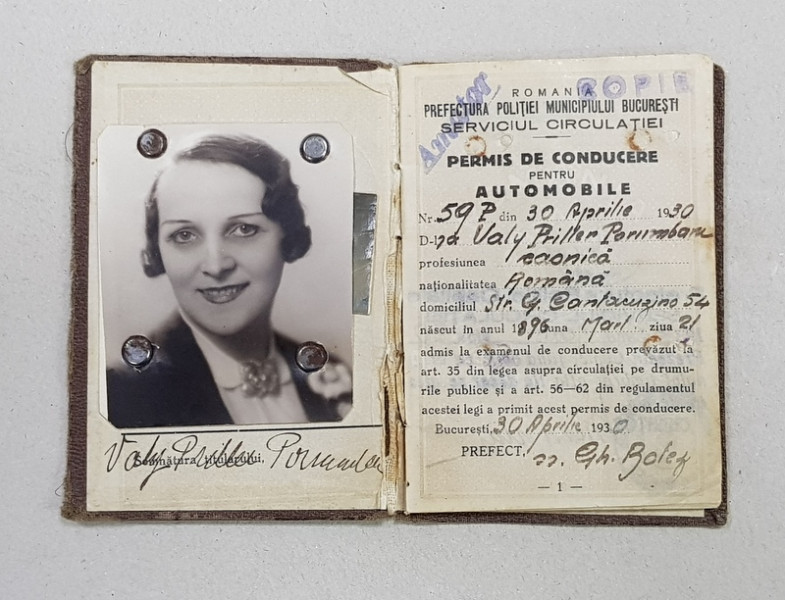 Valy Priller Porumbaru
Semnătura titularului,
Amator
COPIE
ROMANIA
PREFECTURA POLIȚIEI MUNICIPIULUI BUCUREȘTI
SERVICIUL CIRCULAȚIEI
PERMIS DE CONDUCERE
PENTRU
AUTOMOBILE
Nr. 59 P din 30 Aprilie 1930
D-na Valy Priller Porumbaru
profesiunea casnică
naționalitatea Română
domiciliul Str. G. Cantacuzino 54
născut în anul 1896 luna Mart. ziua 21
admis la examenul de conducere prevăzut la
art. 35 din legea asupra circulației pe drumu-
rile publice și a art. 56—62 din regulamentul
acestei legi a primit acest permis de conducere.
București, 30 Aprilie 1930
PREFECT, ss. Gh.
— 1 —